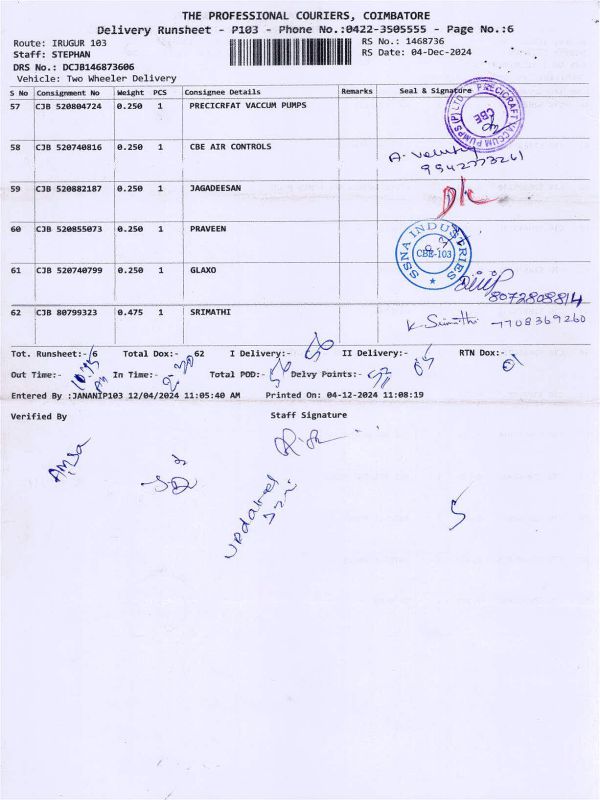 THE PROFESSIONAL COURIERS, COIMBATORE
Delivery Runsheet - P103 - Phone No.:0422-3505555 - Page No.:6
Route: IRUGUR 103
RS No.: 1468736
Staff: STEPHAN
RS Date: 04-Dec-2024
DRS No.: DCJB146873606
Vehicle: Two Wheeler Delivery
S No Consignment No Weight PCS Consignee Details Remarks Seal & Signature
57 CJB 520804724 0.250 1 PRECICRFAT VACCUM PUMPS
PRECICRAFT VACCUM PUMPS (P) LTD CBE
58 CJB 520740816 0.250 1 CBE AIR CONTROLS
9942773261
59 CJB 520882187 0.250 1 JAGADEESAN
60 CJB 520855073 0.250 1 PRAVEEN
SSNA INDUSTRIES CBE-103
61 CJB 520740799 0.250 1 GLAXO
8072808814
62 CJB 80799323 0.475 1 SRIMATHI
K. Srimathi 7708369260
Tot. Runsheet:- 6 Total Dox:- 62 I Delivery:- 56 II Delivery:- 05 RTN Dox:- 01
Out Time:- 10:45 In Time:- 2:30 Total POD:- 56 Delvy Points:- 52
Entered By :JANANIP103 12/04/2024 11:05:40 AM Printed On: 04-12-2024 11:08:19
Verified By Staff Signature
updated